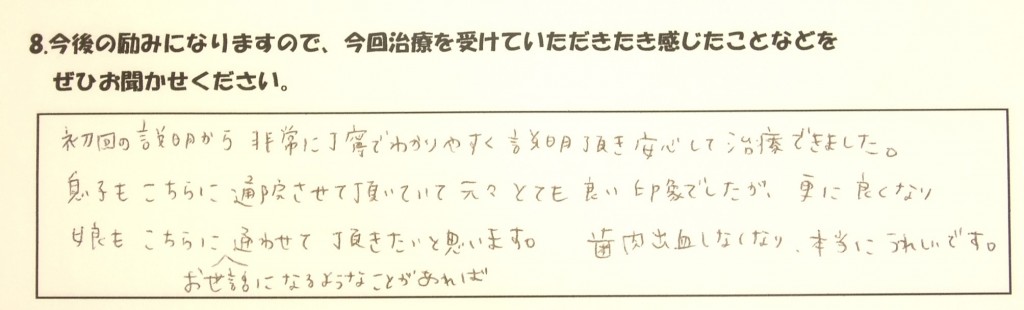 8.今後の励みになりますので、今回治療を受けていただきたき感じたことなどを
ぜひお聞かせください。
初回の説明から 非常に丁寧でわかりやすく説明頂き安心して治療できました。
息子もこちらに通院させて頂いていて元々とても良い印象でしたが、更に良くなり
娘もこちらに通わせて頂きたいと思います。 歯肉出血しなくなり、本当にうれしいです。
お世話になるようなことがあれば